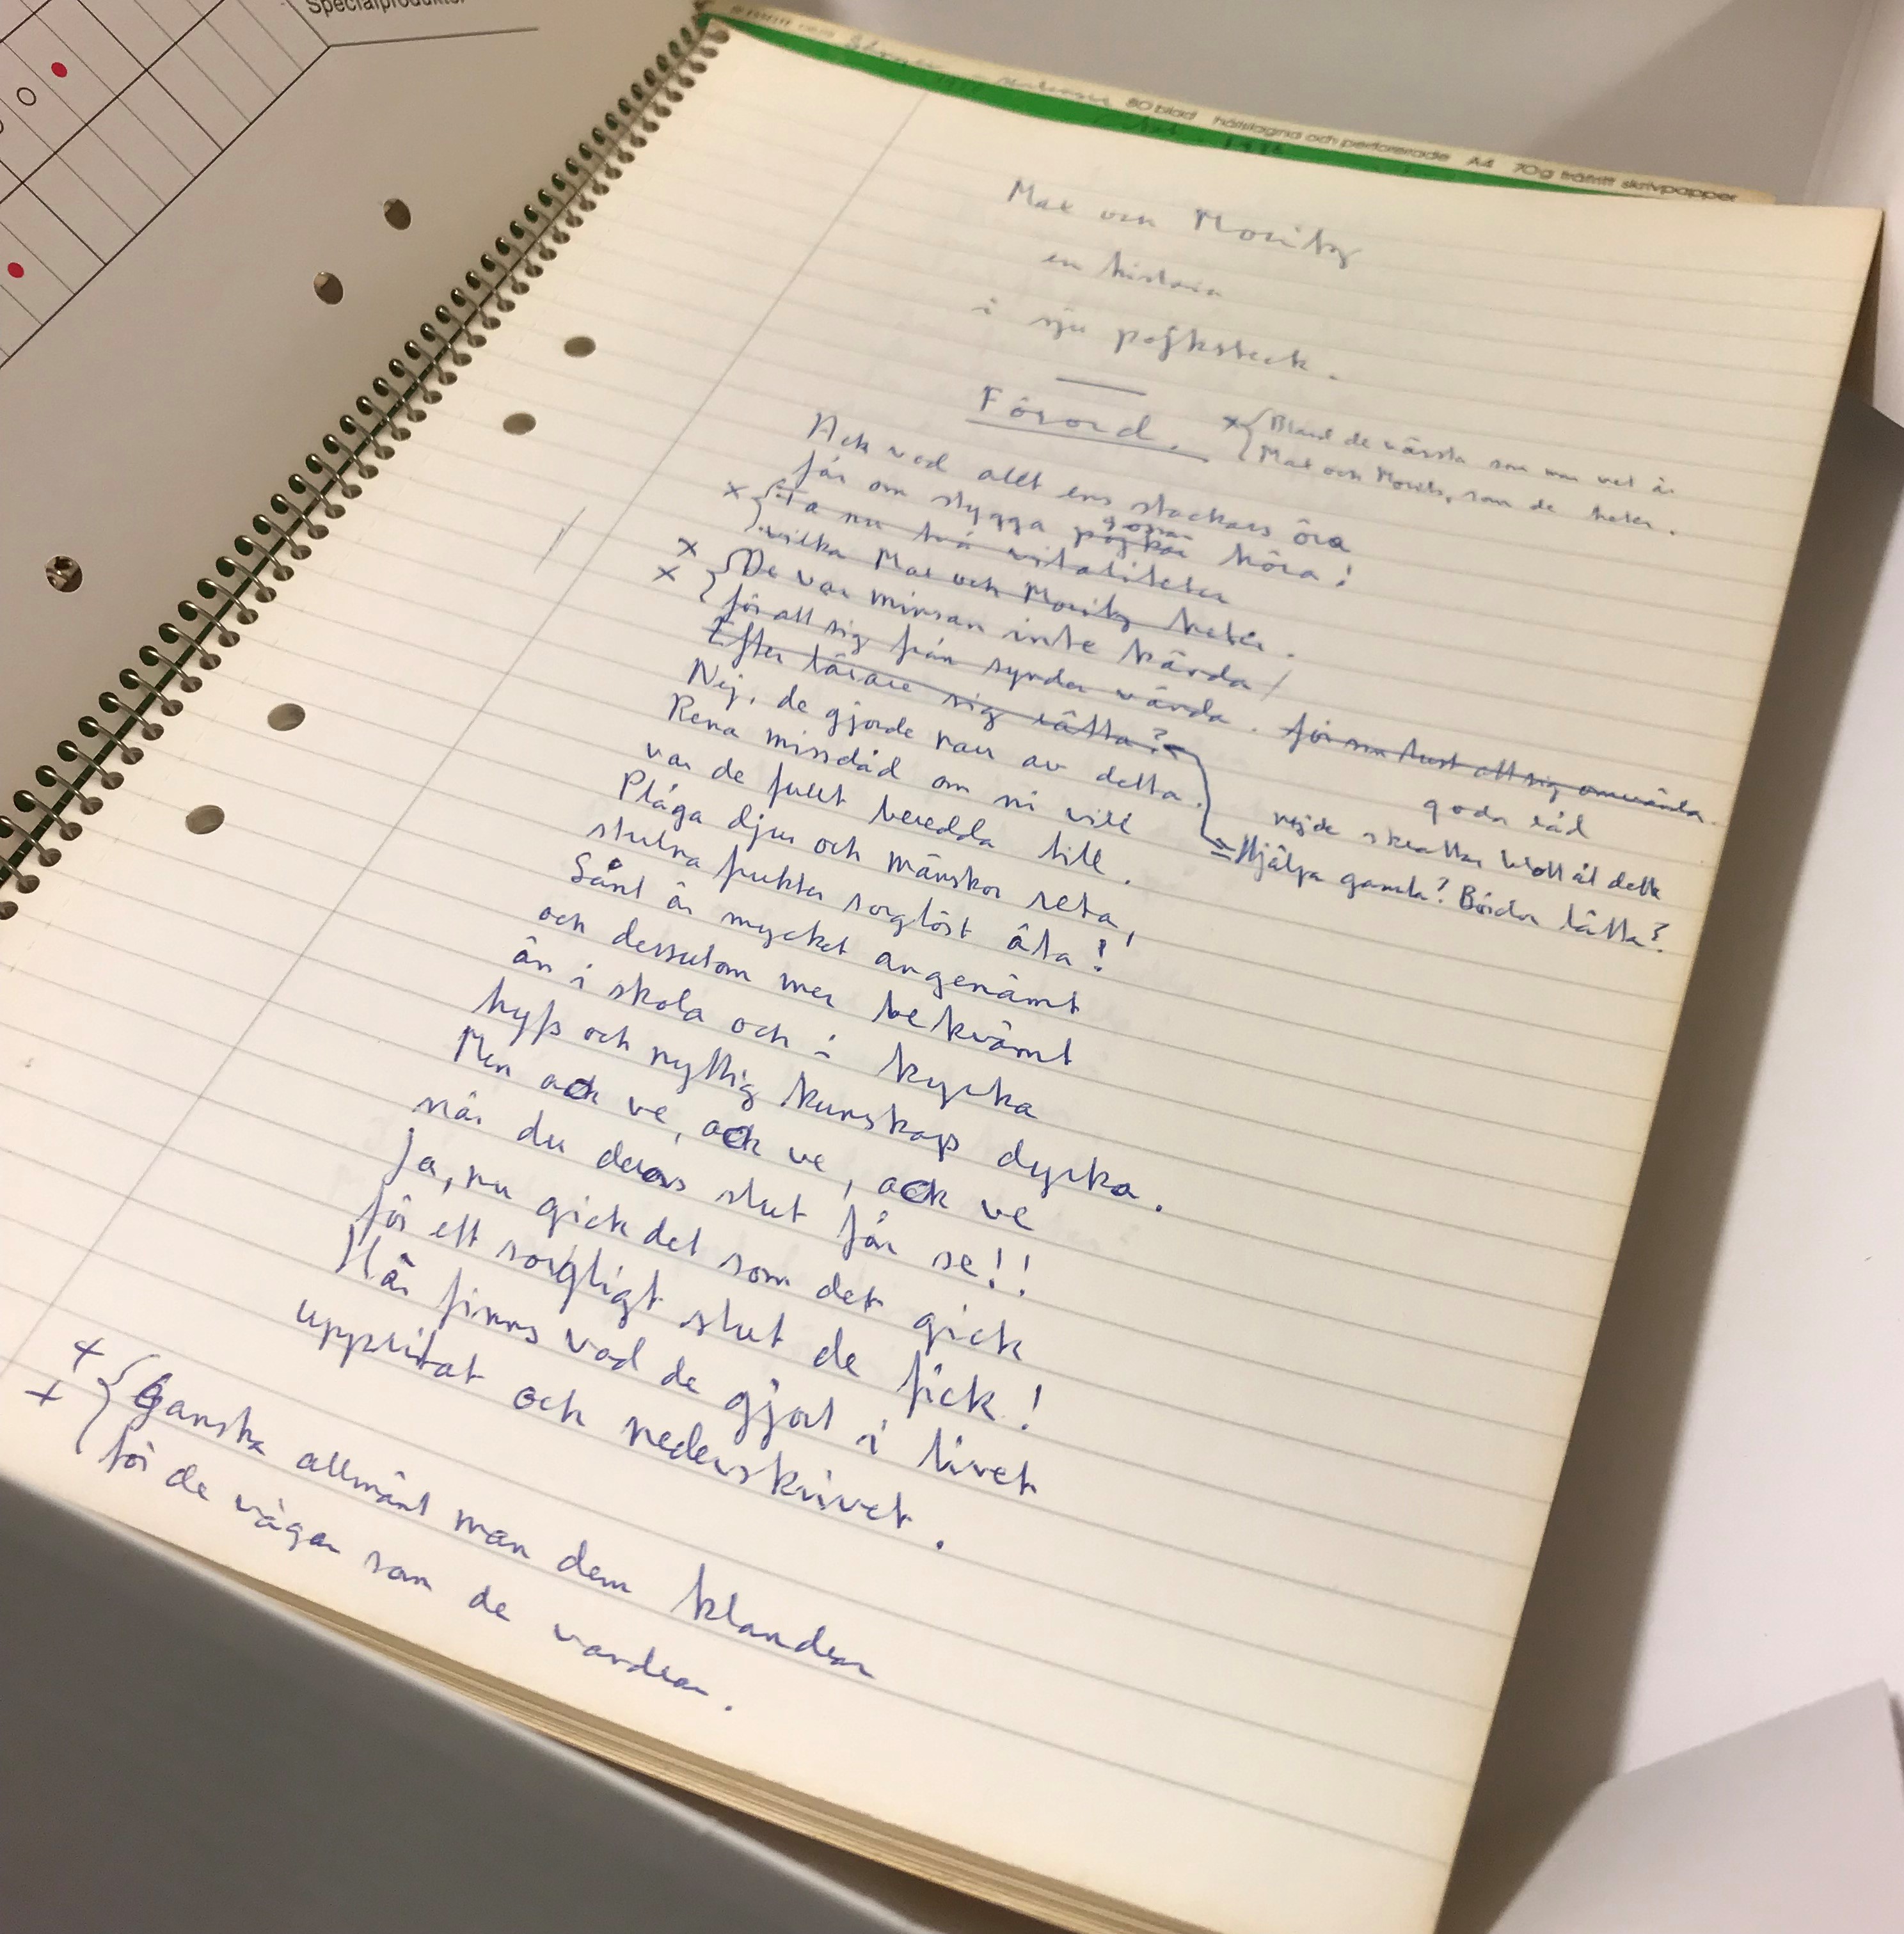 Specialprodukter
80 blad hålslagna och perforerade A4 70 g träfritt skrivpapper
Max och Moritz
en historia
i sju pojkstreck.
Förord.
x Bland de värsta som man vet är
Max och Moritz, som de heter.
Ack vad allt ens stackars öra
får om stygga pojkar hörа!
x Ta nu två vitaliteter
vilka Max och Moritz heter.
x De var minsan inte kända
x för att sig från synder vända. för
Efter lärare sig rätta?
Nej, de gjorde narr av detta.
goda råd
skratta blott åt detta
Hjälpa gamla? Bördor lätta?
Rena missdåd om ni vill
var de fullt beredda till.
Plåga djur och mänskor reta,
stulna frukter sorglöst äta!
Sånt är mycket angenämt
och dessutom mer bekvämt
än i skola och i kyrka
hyfs och nyttig kunskap dyrka.
Men ack ve, ack ve, ack ve
när du deras slut får se!!
Ja, nu gick det som det gick
för ett sorgligt slut de fick!
Här finns vad de gjort i livet
uppritat och nederskrivet.
x Ganska allmänt man dem klandrar
x för de vägar som de vandrar.